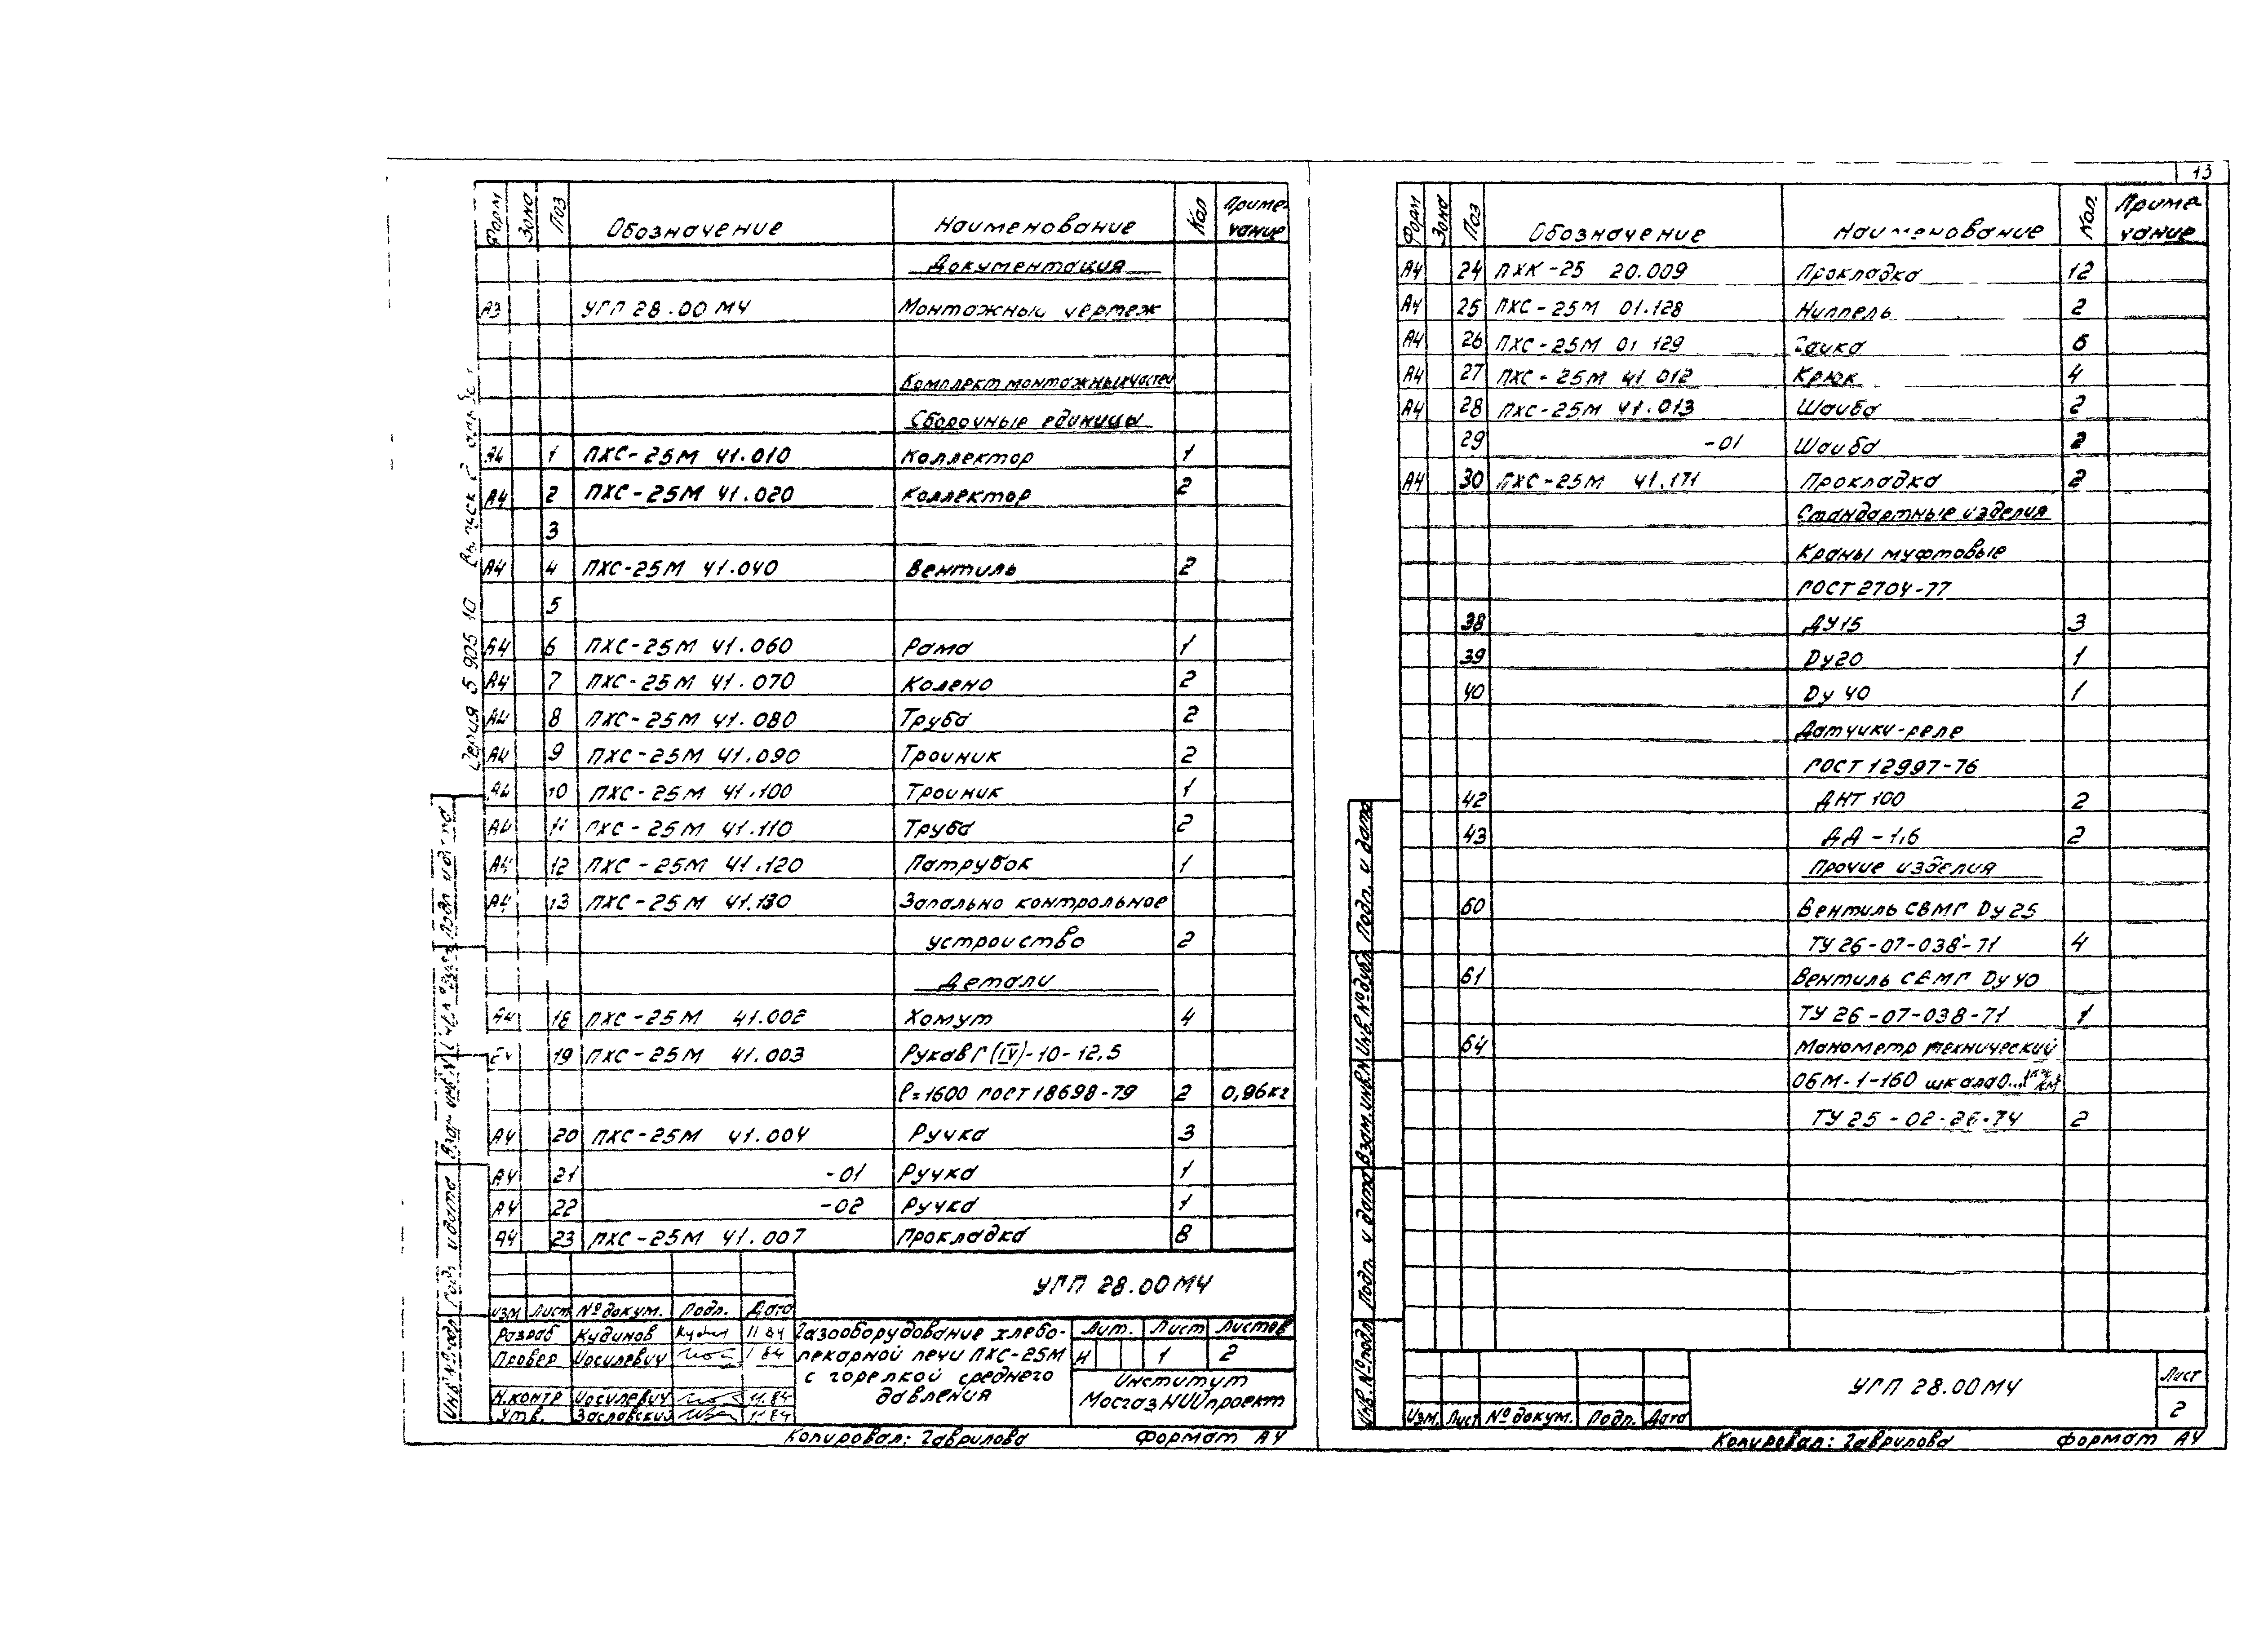 13
Форм Зона Поз Обозначение Наименование Кол Приме-чание
Документация
А3 УГП 28.00 МЧ Монтажный чертеж
Комплект монтажных частей
Сборочные единицы
А4 1 ПХС-25М 41.010 Коллектор 1
А4 2 ПХС-25М 41.020 Коллектор 2
3
А4 4 ПХС-25М 41.040 Вентиль 2
5
А4 6 ПХС-25М 41.060 Рама 1
А4 7 ПХС-25М 41.070 Колено 2
А4 8 ПХС-25М 41.080 Труба 2
А4 9 ПХС-25М 41.090 Троиник 2
А4 10 ПХС-25М 41.100 Троиник 1
А4 11 ПХС-25М 41.110 Труба 2
А4 12 ПХС-25М 41.120 Патрубок 1
А4 13 ПХС-25М 41.130 Запально контрольное
устроиство 2
Детали
А4 18 ПХС-25М 41.002 Хомут 4
19 ПХС-25М 41.003 Рукав Г(IV)-10-12,5
ℓ=1600 ГОСТ 18698-79 2 0,96кг
А4 20 ПХС-25М 41.004 Ручка 3
А4 21 -01 Ручка 1
А4 22 -02 Ручка 1
А4 23 ПХС-25М 41.007 Прокладка 8
УГП 28.00МЧ
Изм Лист № докум. Подп. Дата
Разраб Кудинов 11 84
Провер Иосилевич 84
Н.контр Иосилевич 11.84
Утв. Заславский 11 84
Газооборудование хлебо-
пекарной печи ПХС-25М
с горелкой среднего
давления
Лит. Лист Листов
И 1 2
Институт
МосгазНИИпроект
Копировал: Гаврилова Формат А4
Серия 5 905 10 Выпуск 2
Инв № подл Подп. и дата Взам инв.№ Инв № дубл Подп и дата
Форм Зона Поз Обозначение Наименование Кол. Приме-чание
А4 24 ПХК-25 20.009 Прокладка 12
А4 25 ПХС-25М 01.128 Ниппель 2
А4 26 ПХС-25М 01 129 Гаика 6
А4 27 ПХС-25М 41 012 Крюк 4
А4 28 ПХС-25М 41.013 Шаиба 2
29 -01 Шаиба 2
А4 30 ПХС-25М 41.171 Прокладка 2
Стандартные изделия
Краны муфтовые
ГОСТ 2704-77
38 ДУ15 3
39 Dу20 1
40 Dу 40 1
Датчики-реле
ГОСТ 12997-76
42 ДНТ 100 2
43 ДД-1,6 2
Прочие изделия
60 Вентиль СВМГ Dу 25
ТУ 26-07-038-71 4
61 Вентиль СВМГ Dу 40
ТУ 26-07-038-71 1
64 Манометр технический
ОБМ-1-160 шкала 0...1
ТУ 25-02-26-74 2
УГП 28.00МЧ
Лист
2
Изм. Лист № докум. Подп. Дата
Инв. № подл Подп. и дата Взам. инв.№ Инв № дубл Подп. и дата
Копировал: Гаврилова Формат А4